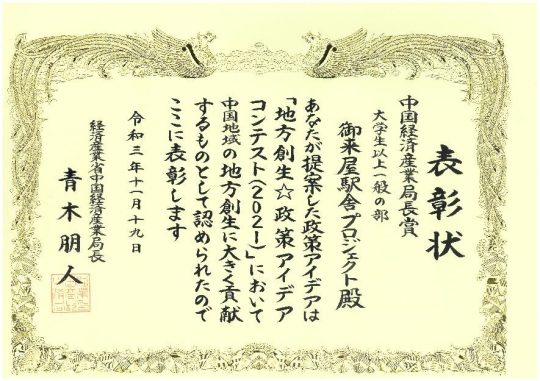 表彰状
中国経済産業局長賞
大学生以上一般の部
御来屋駅舎プロジェクト殿
あなたが提案した政策アイデアは
「地方創生☆政策アイデア
コンテスト(2021)」において
中国地域の地方創生に大きく貢献
するものとして認められたので
ここに表彰します
令和三年十一月十九日
経済産業省中国経済産業局長
青木朋人